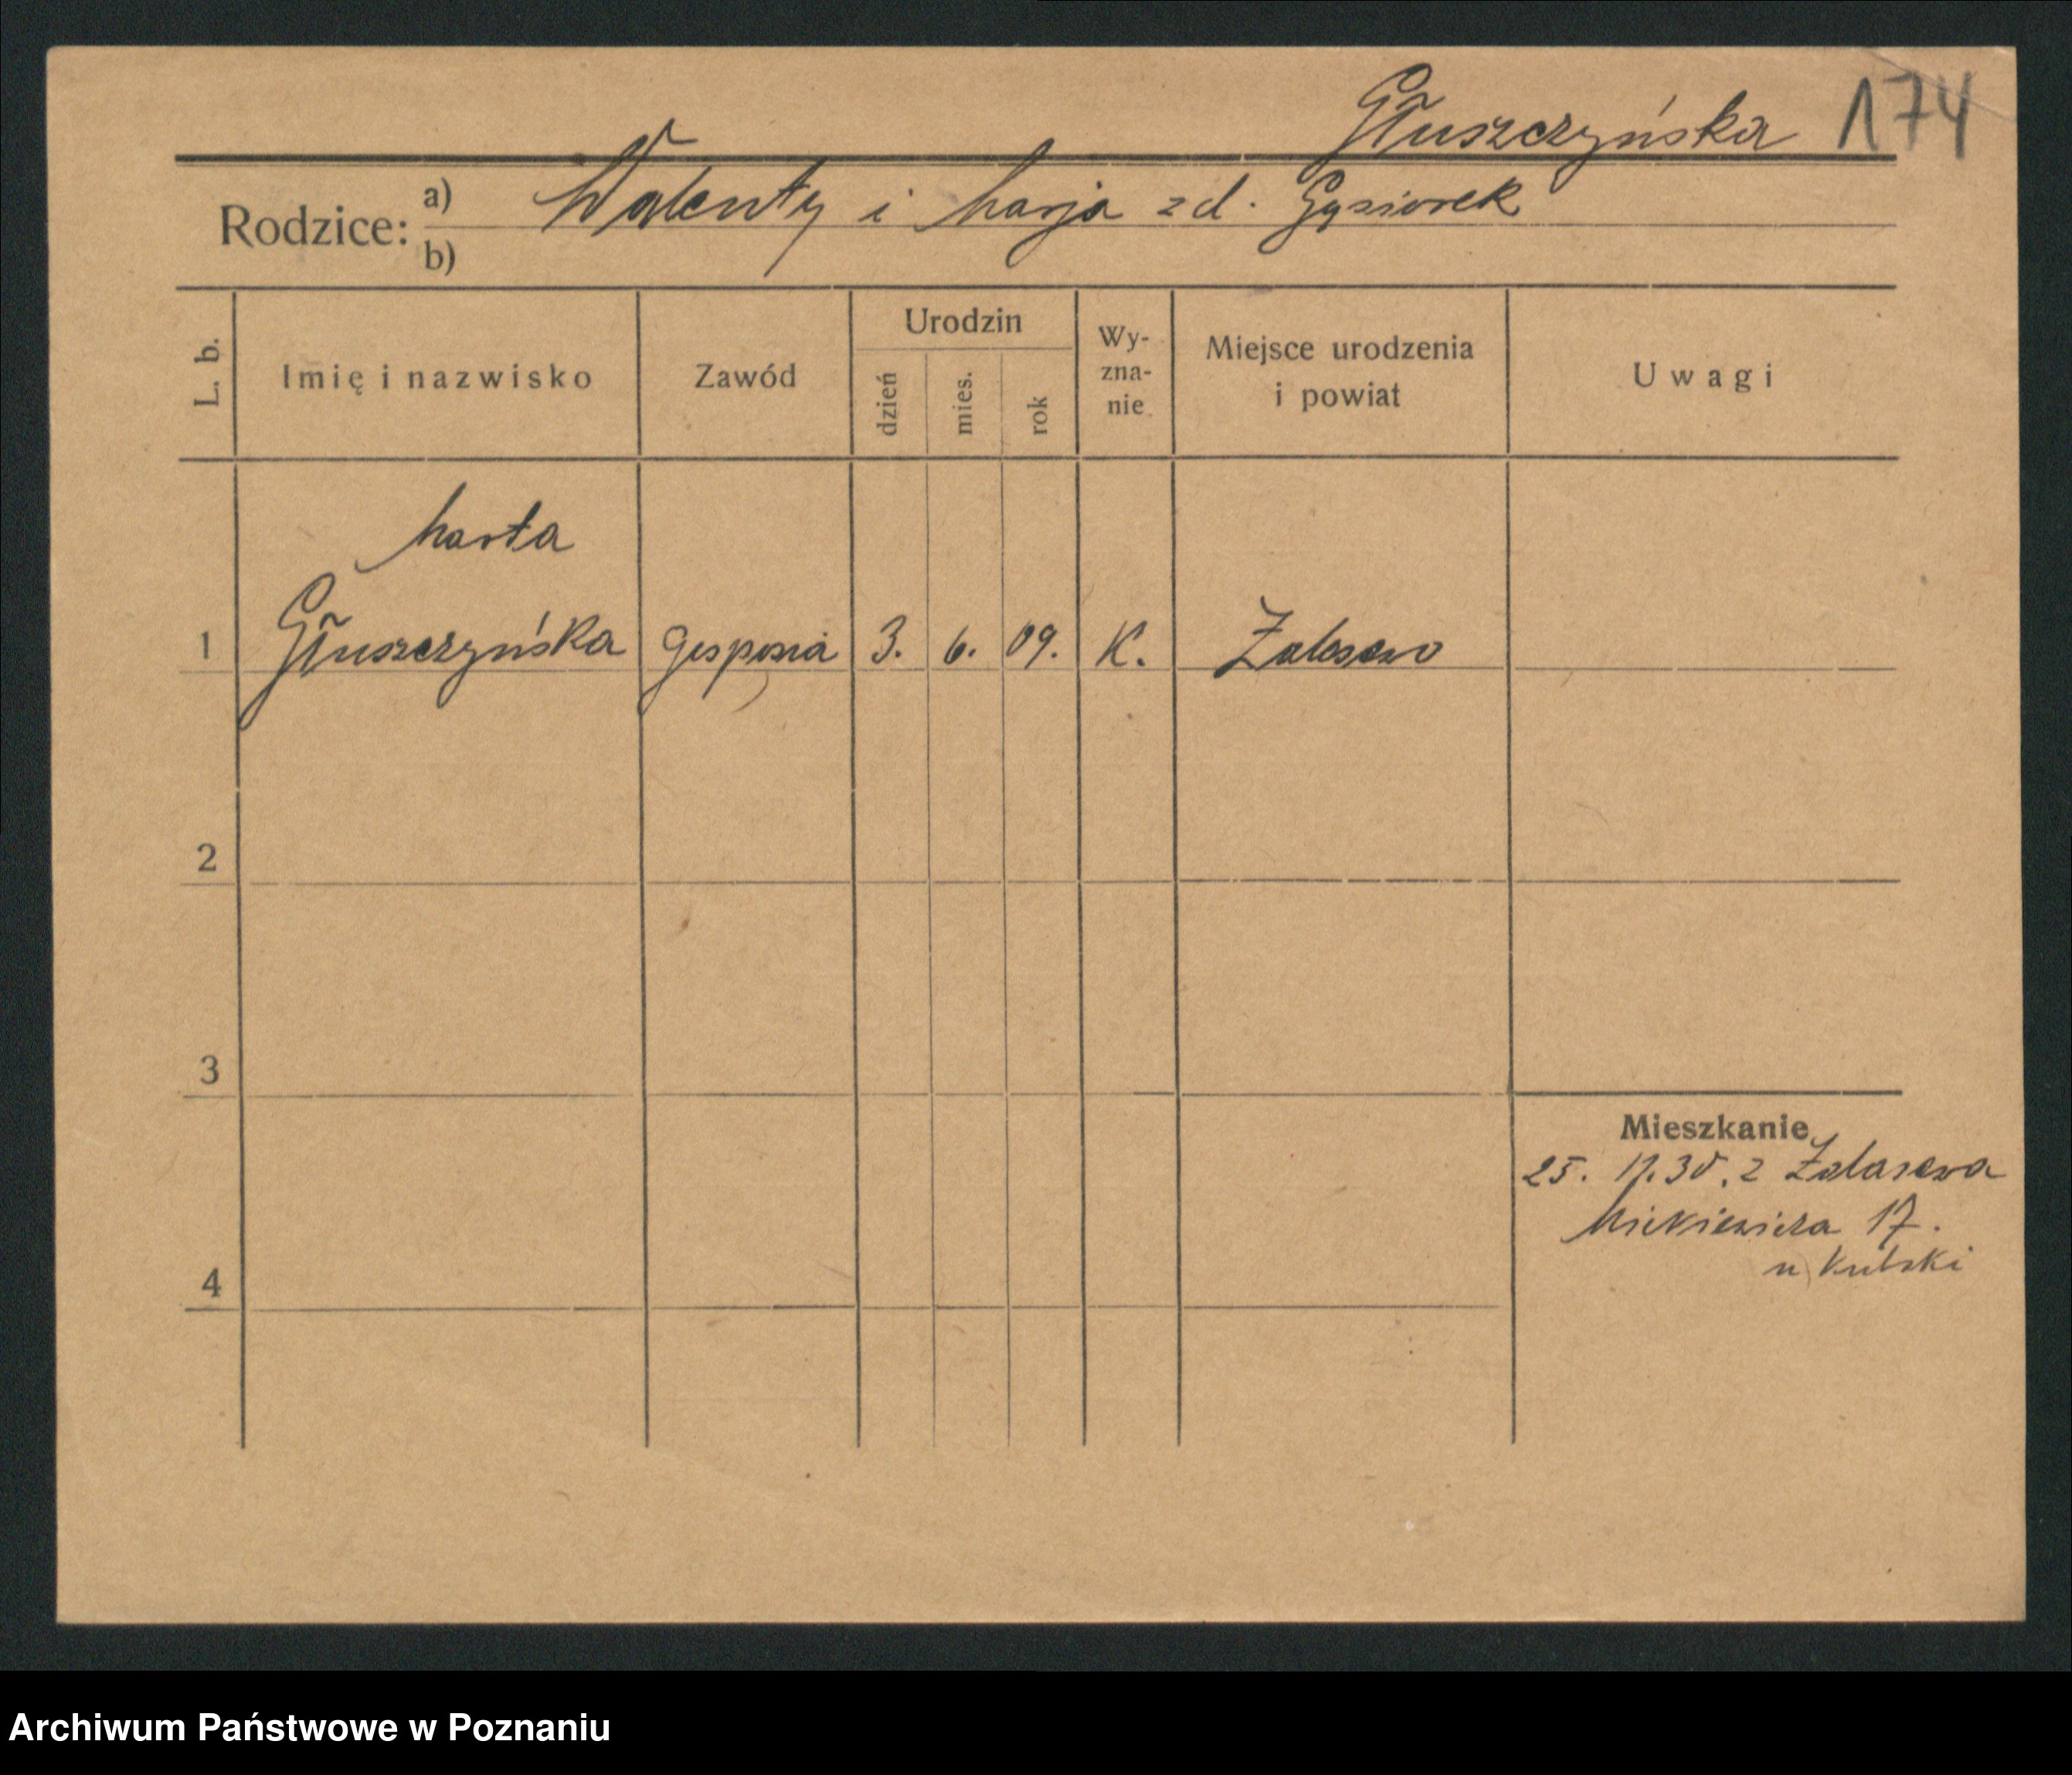 Głuszczyńska 174
Rodzice: a) Walenty i Marja zd. Gąsiorek
b)
L. b. Imię i nazwisko Zawód Urodzin dzień mies. rok Wy-zna-nie Miejsce urodzenia i powiat Uwagi
Marta
1 Głuszczyńska Gosposia 3. 6. 09. K. Zalasewo
2
3
Mieszkanie
25. 11. 30. z Zalasewa
Mickiewicza 17.
4
u Kubski
Archiwum Państwowe w Poznaniu